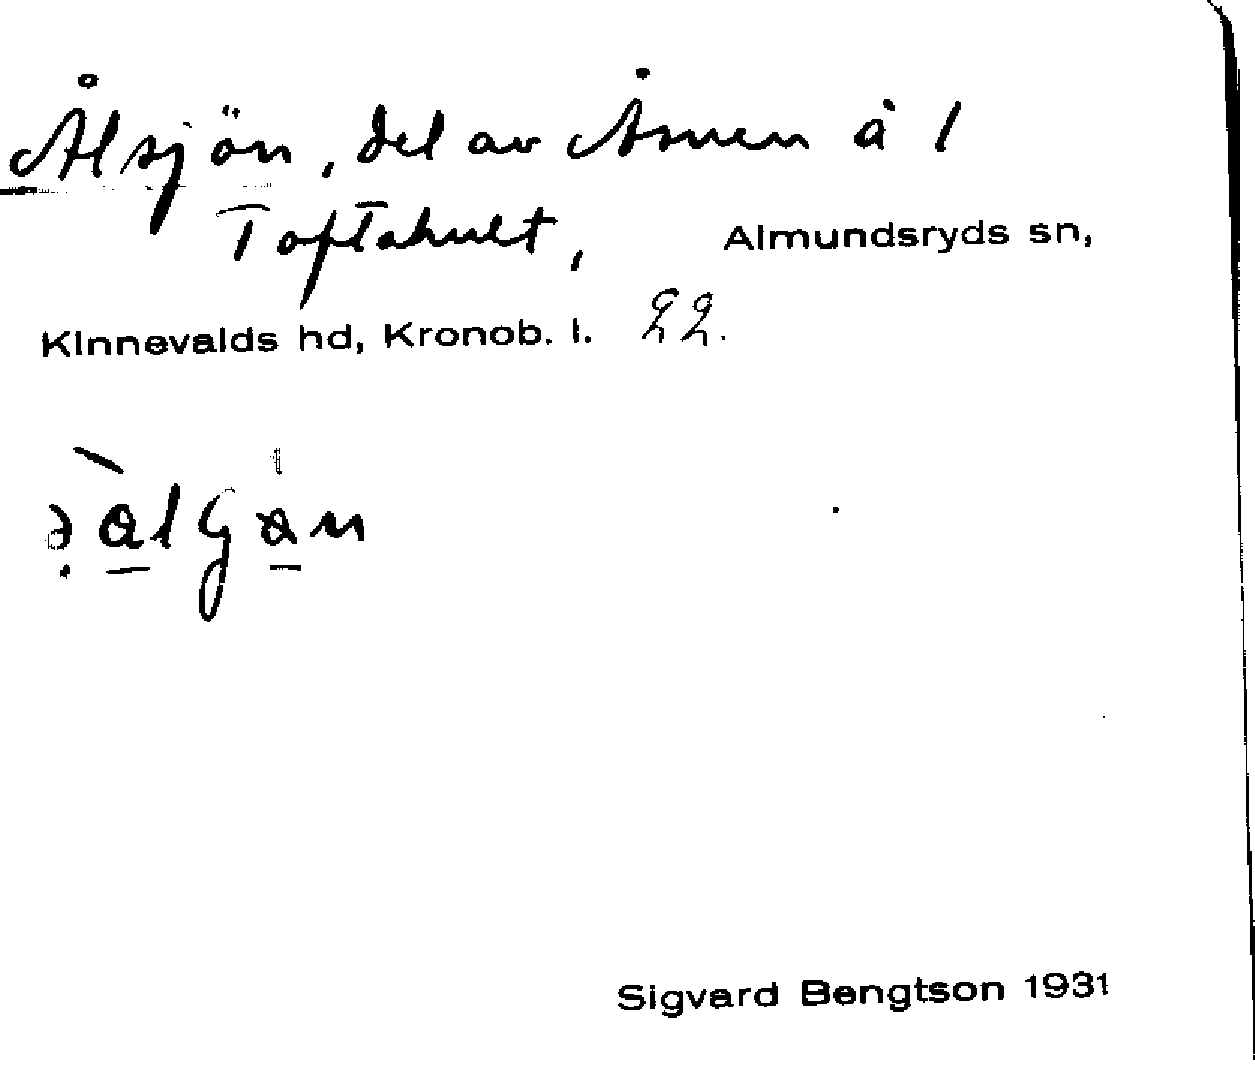 Ålsjön, del av Åsnen å 1
Toftahult, Almundsryds sn,
Kinnevalds hd, Kronob. l. 22.
Sigvard Bengtson 1931